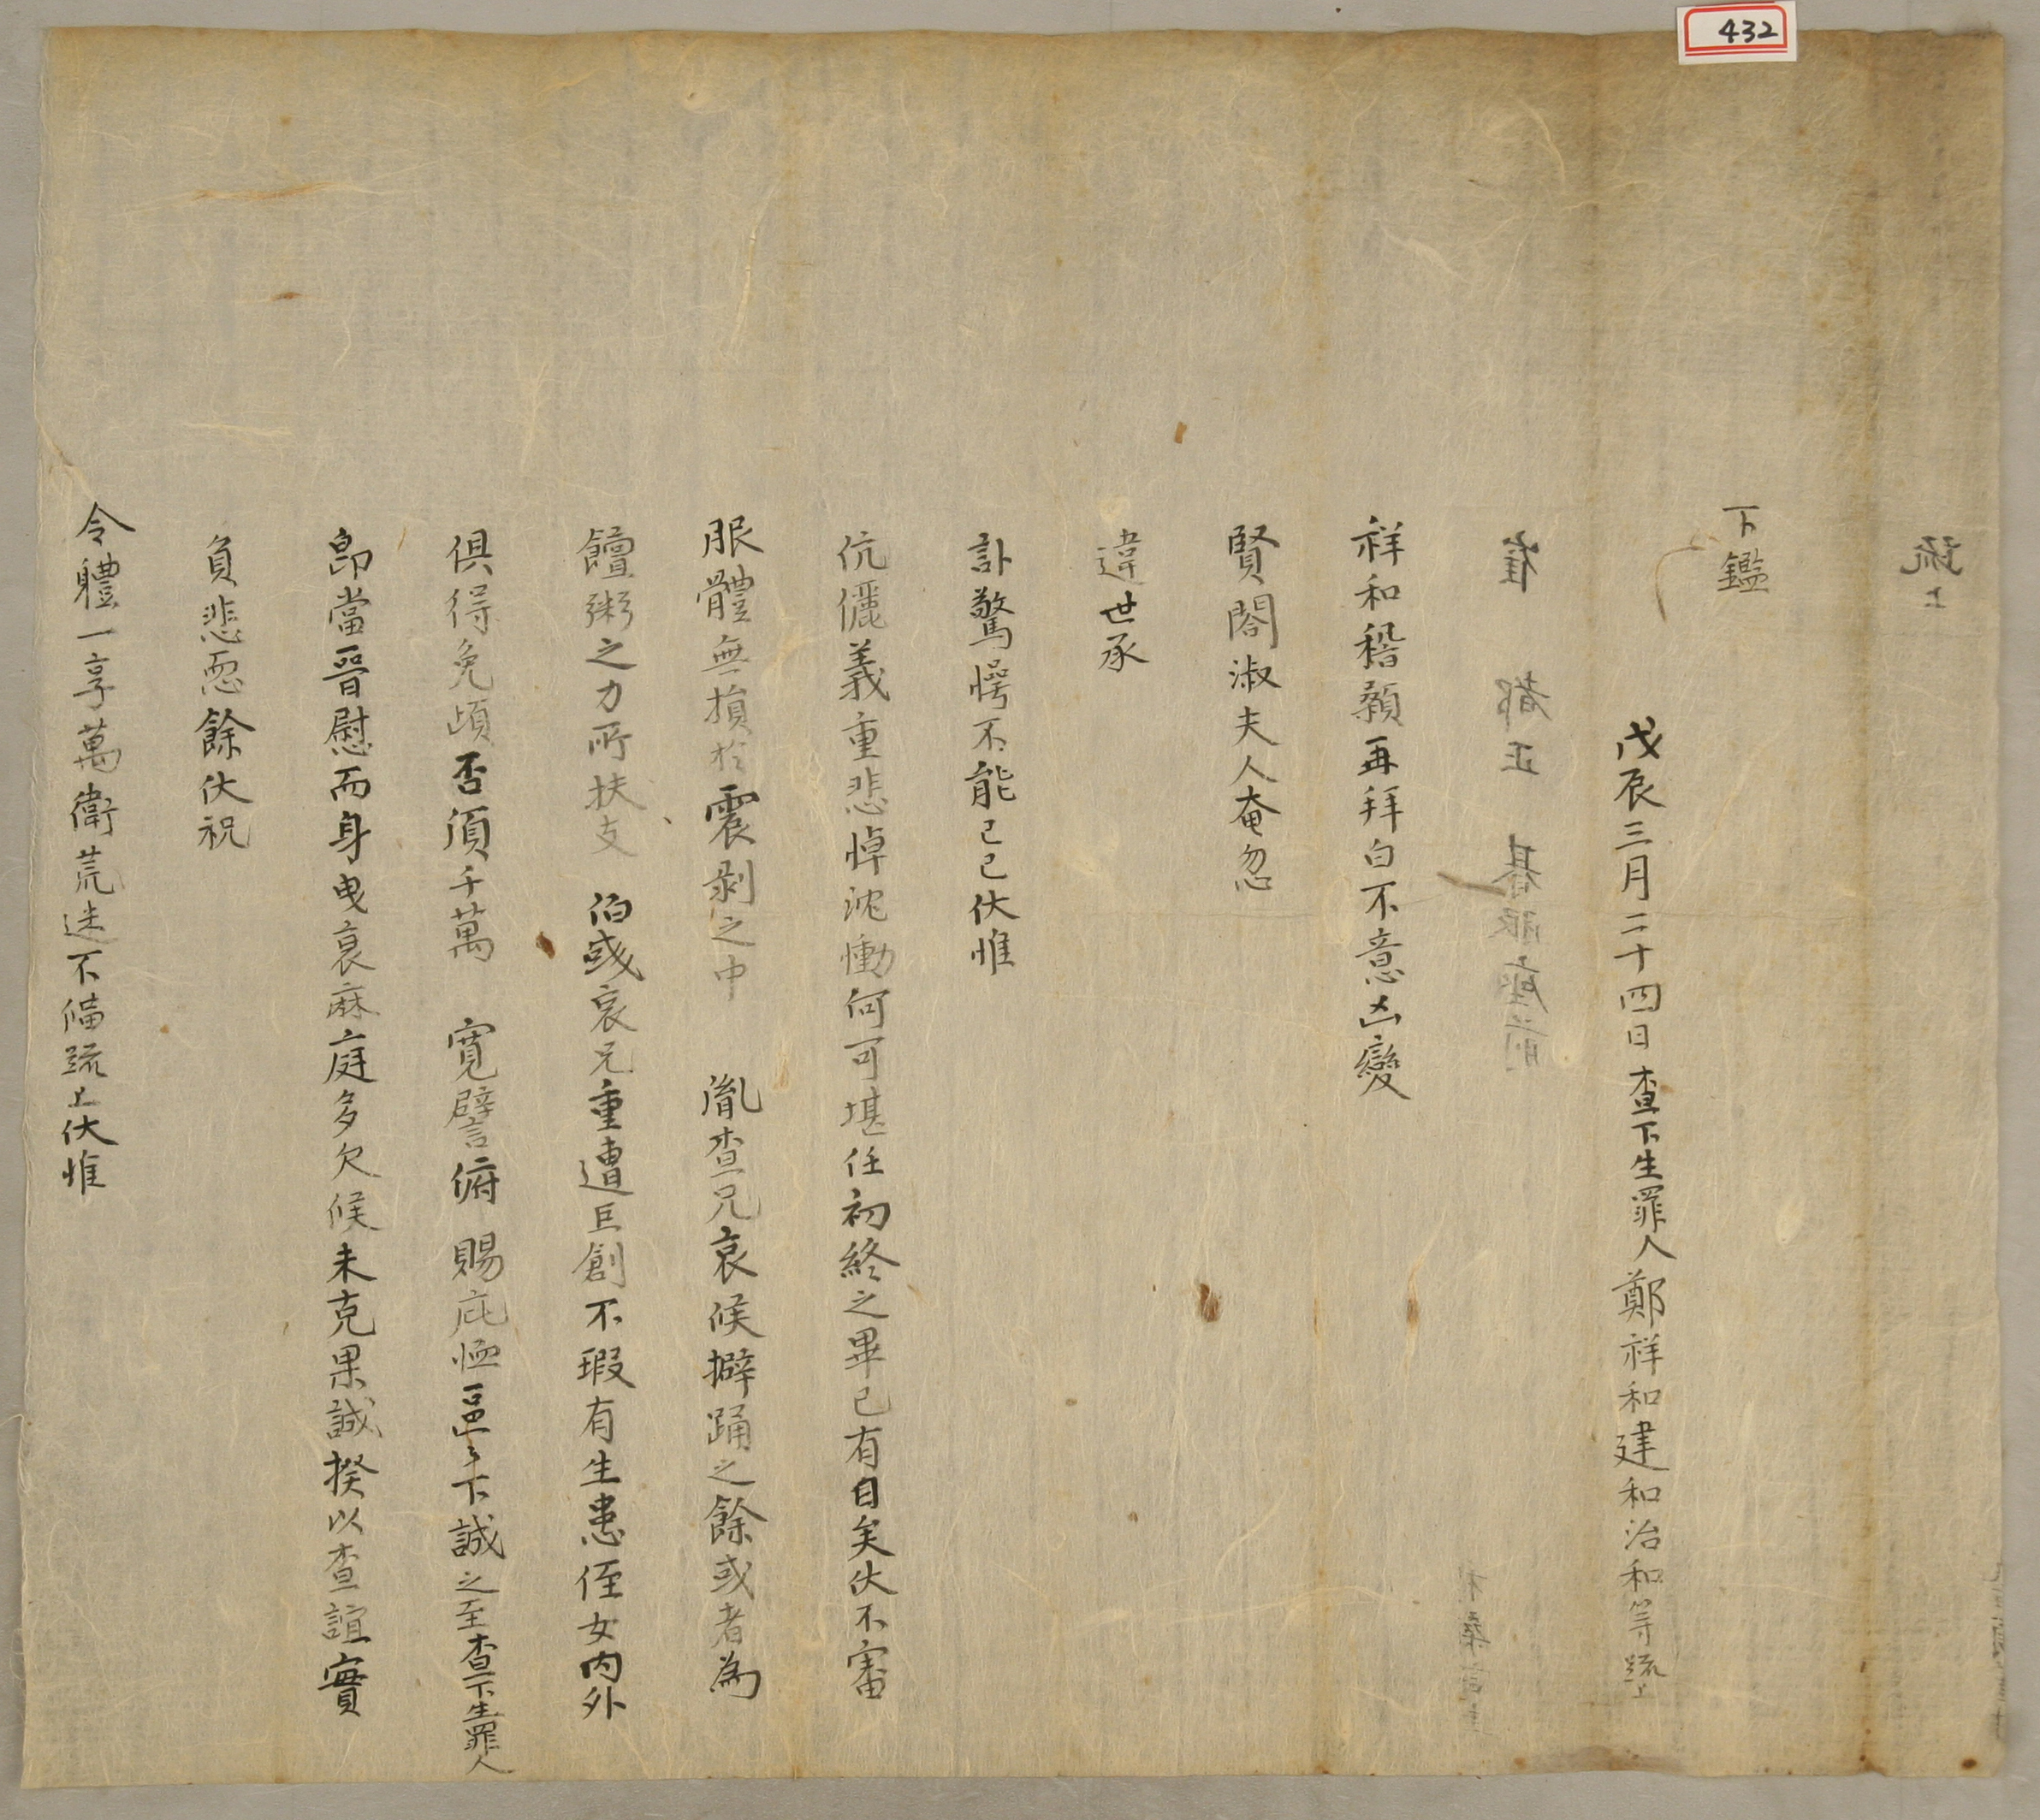 432
疏上
崔 都正 朞服座前
祥和稽顙再拜白不意凶變
賢閤淑夫人奄忽
違世承
訃驚愕不能已已伏惟
伉儷義重悲悼沈慟何可堪任初終之畢已有日矣伏不審
服體無損於震剝之中 胤查兄哀候擗踊之餘或者為
饘粥之力所扶支 伯彧哀兄重遭巨創不瑕有生患侄女內外
俱得免頉否湏千萬 寬譬俯 賜庇恤區〻下誠之至查下生罪人
卽當晉慰而身曳衰麻庭多欠候未克果誠揆以查誼實
負悲恧餘伏祝
令軆一享萬衛荒迷不備疏上伏惟
下鑑
戊辰三月二十四日查下生罪人鄭祥和建和治和等疏上